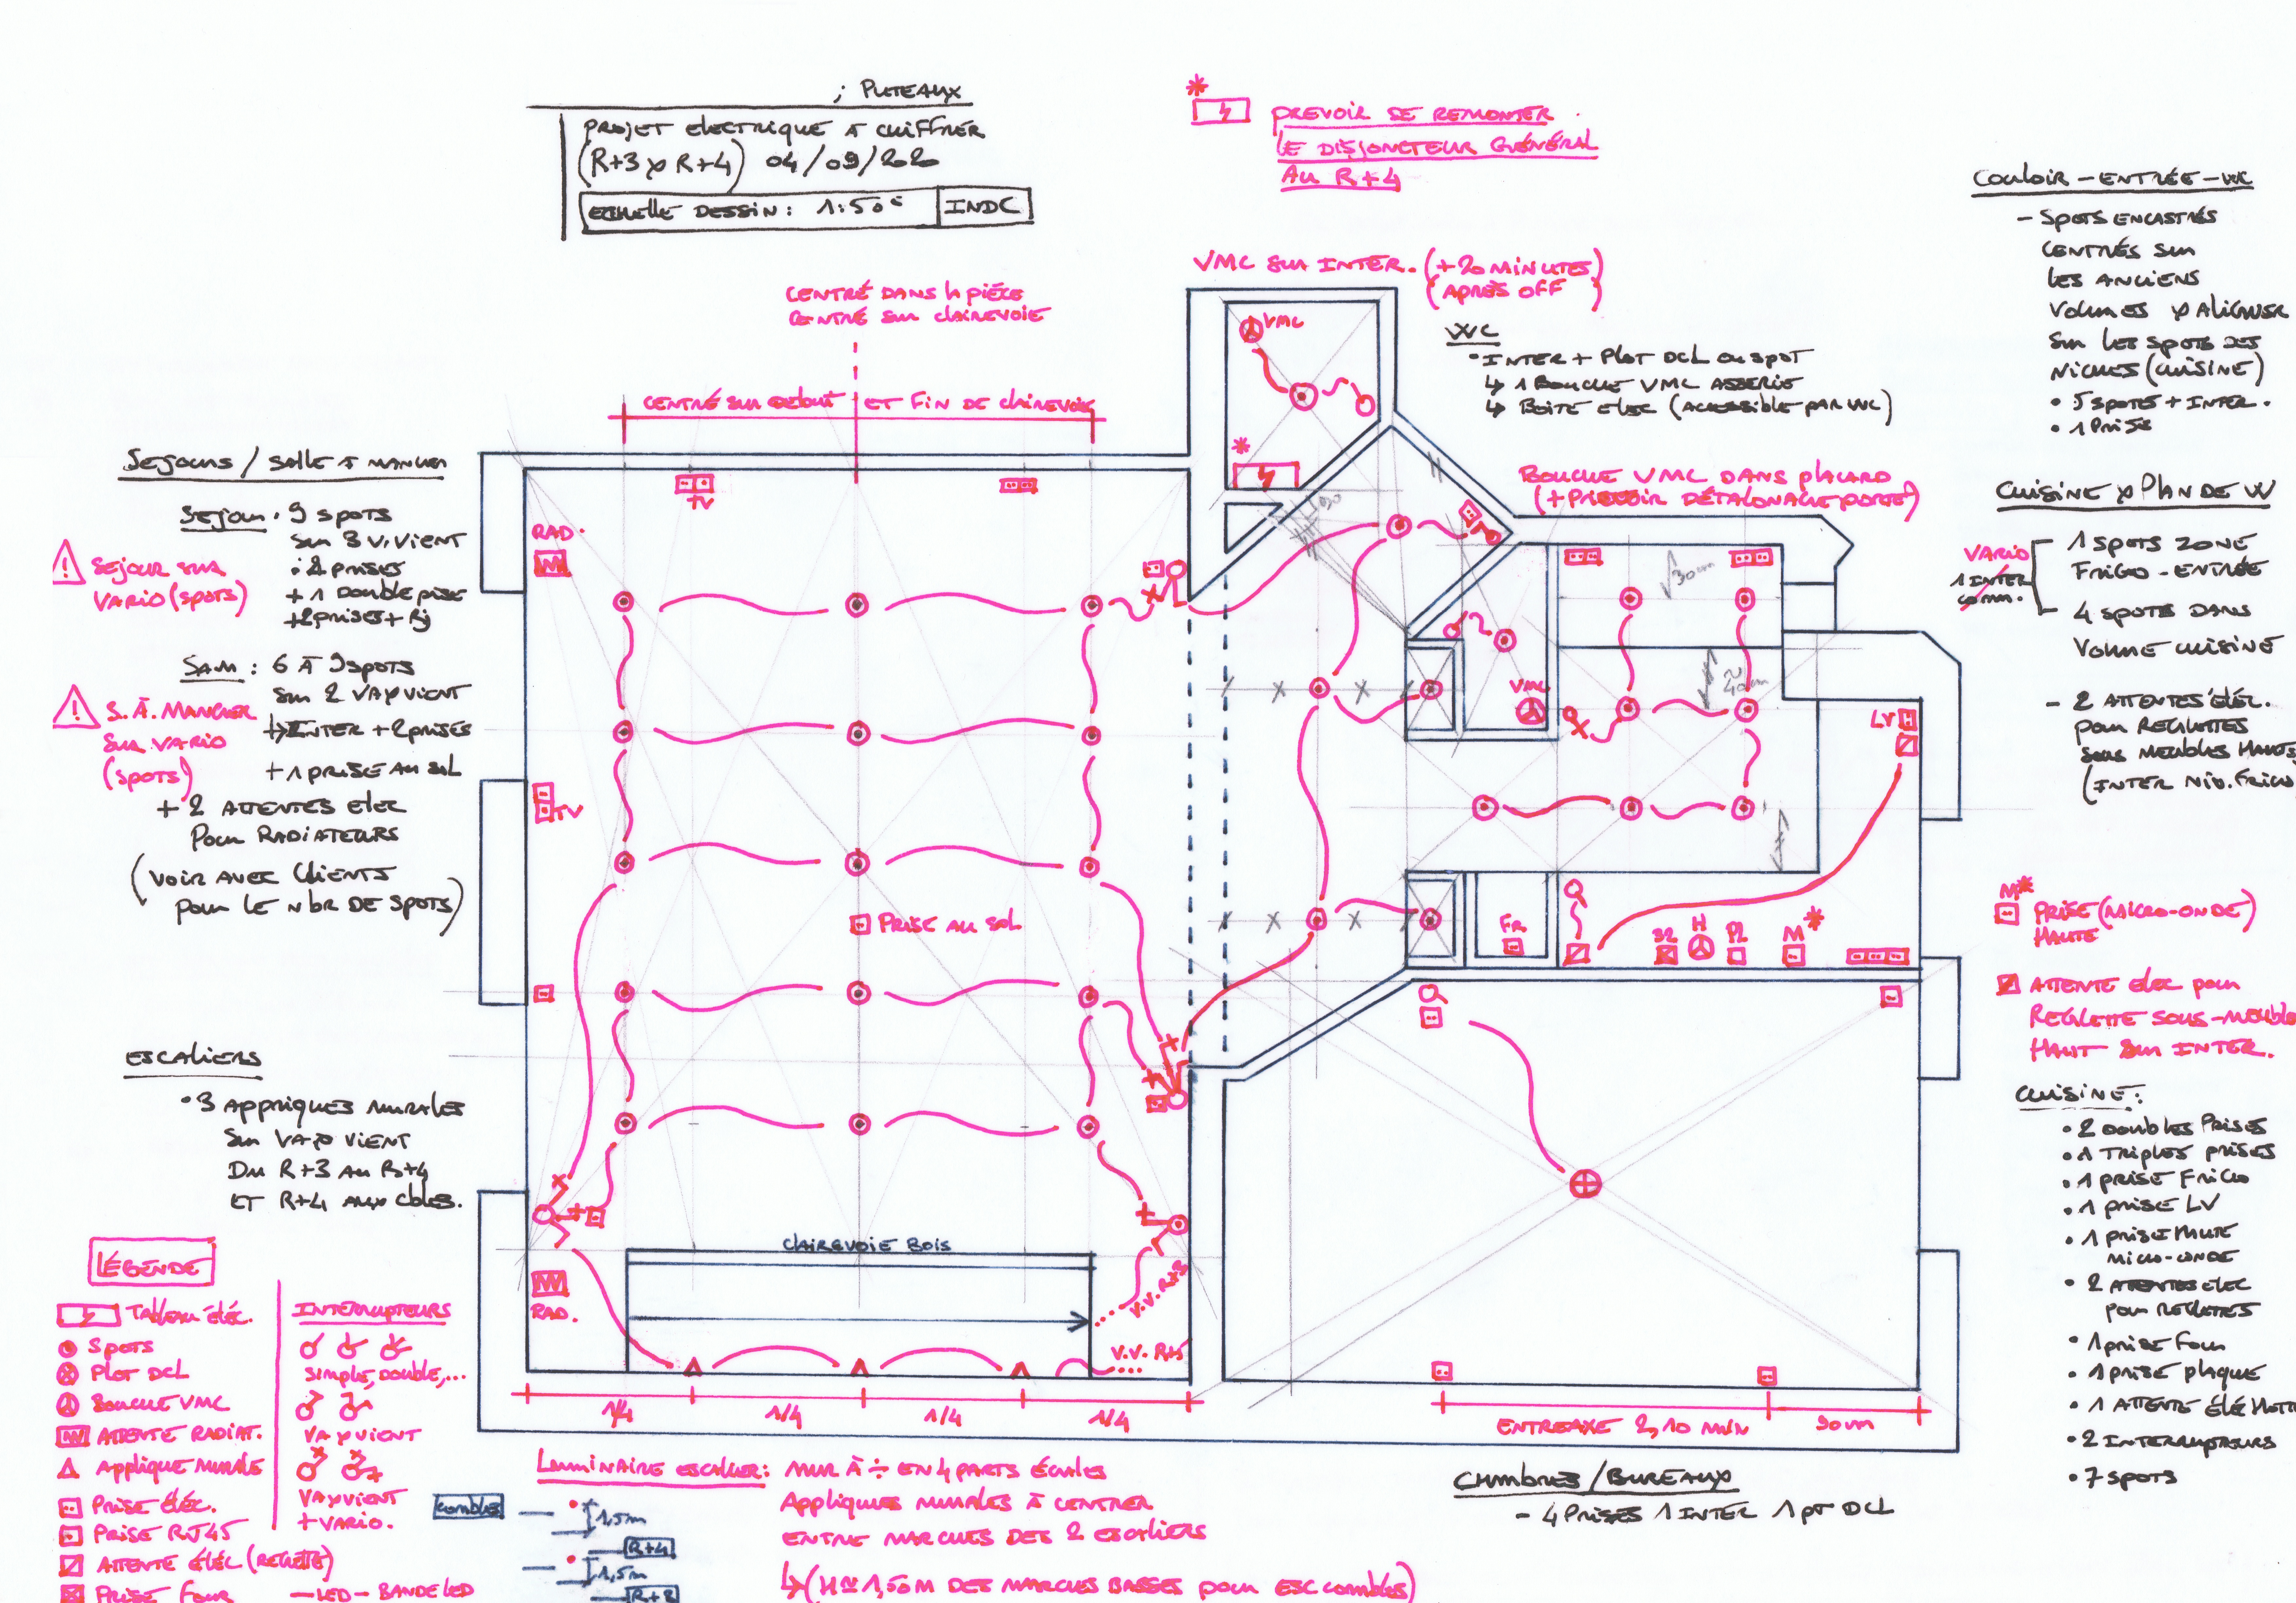 ; PUTEAUX
PROJET ELECTRIQUE A CHIFFRER
(R+3 & R+4) 04/09/2020
ECHELLE DESSIN : 1:50e INDC
*
PREVOIR DE REMONTER
LE DISJONCTEUR GÉNÉRAL
AU R+4
VMC SUR INTER. (+20 MINUTES)
(APRÈS OFF)
WC
• INTER + PLOT DCL OU SPOT
↳ 1 BOUCHE VMC ASSERVIE
↳ BOITE ELEC (ACCESSIBLE PAR WC)
COULOIR - ENTRÉE - WC
- SPOTS ENCASTRÉS
CENTRÉS SUR
LES ANCIENS
VOLUMES & ALIGNER
SUR LES SPOTS DES
NICHES (CUISINE)
• 5 SPOTS + INTER.
• 1 PRISE
CUISINE & PLAN DE W
VARIO
1 INTER
COMM.
1 SPOTS ZONE
FRIGO - ENTRÉE
4 SPOTS DANS
VOLUME CUISINE
- 2 ATTENTES ÉLÉC.
POUR REGLETTES
SOUS MEUBLES HAUTS
(INTER NIV. FRIGO
M*
PRISE (MICRO-ONDE)
HAUTE
ATTENTE ELEC POUR
REGLETTE SOUS-MEUBLE
HAUT SUR INTER.
CUISINE :
• 2 DOUBLES PRISES
• 1 TRIPLES PRISES
• 1 PRISE FRIGO
• 1 PRISE LV
• 1 PRISE HAUTE
MICRO-ONDE
• 2 ATTENTES ELEC
POUR REGLETTES
• 1 PRISE FOUR
• 1 PRISE PLAQUE
• 1 ATTENTE ÉLÉ HOTTE
• 2 INTERRUPTEURS
• 7 SPOTS
CENTRÉ DANS LA PIÈCE
CENTRÉ SUR CLAIREVOIE
CENTRÉ SUR DEBUT ET FIN DE CLAIREVOIE
BOUCHE VMC DANS PLACARD
(+ PREVOIR DÉTALONAGE PORTE)
SEJOURS / SALLE A MANGER
SEJOUR : 9 SPOTS
SUR 3 V.VIENT
: 2 PRISES
+ 1 DOUBLE PRISE
+ 2 PRISES + RJ
! SEJOUR SUR
VARIO (SPOTS)
SAM : 6 À 9 SPOTS
SUR 2 VA & VIENT
↳ INTER + 2 PRISES
+ 1 PRISE AU SOL
! S. À. MANGER
SUR VARIO
(SPOTS)
+ 2 ATTENTES ELEC
POUR RADIATEURS
(VOIR AVEC CLIENTS
POUR LE NBR DE SPOTS)
ESCALIERS
• 3 APPLIQUES MURALES
SUR VA & VIENT
DU R+3 AU R+4
ET R+4 AUX CBLES.
VMC
*
TV
RAD.
TV
PRISE AU SOL
RAD.
30cm
40cm
VMC
LV
FR.
H
PL
M*
CLAIREVOIE BOIS
V.V. R+3
V.V. R+4
1/4 1/4 1/4 1/4
ENTREAXE 2,10 MIN 90cm
LÉGENDE
TABLEAU ÉLÉC.
SPOTS
PLOT DCL
BOUCHE VMC
ATTENTE RADIAT.
APPLIQUE MURALE
PRISE ÉLÉC.
PRISE RJ45
ATTENTE ÉLÉC (REGLETTE)
PRISE FOUR
INTERRUPTEURS
SIMPLE, DOUBLE,...
VA & VIENT
VA & VIENT
+ VARIO.
— LED — BANDE LED
COMBLES
1,5m
R+4
1,5m
R+3
LUMINAIRE ESCALIER : MUR À ÷ EN 4 PARTS ÉGALES
APPLIQUES MURALES À CENTRER
ENTRE MARCHES DES 2 ESCALIERS
↳ (H ≃ 1,50M DES MARCHES BASSES POUR ESC COMBLES)
CHAMBRES / BUREAUX
- 4 PRISES 1 INTER 1 PT DCL